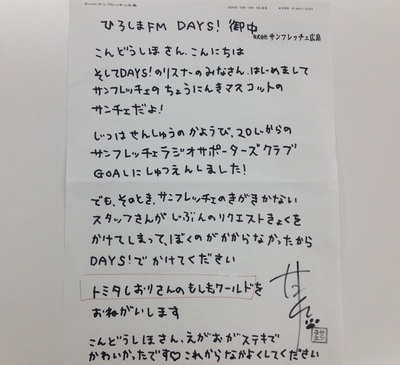 ひろしまFM DAYS! 御中
株式会社 サンフレッチェ広島
こんどうしほさん、こんにちは
そしてDAYS!のリスナーのみなさん、はじめまして
サンフレッチェの ちょうにんきマスコットの
サンチェだよ!
じつは せんしゅうの かようび、20じからの
サンフレッチェラジオサポーターズクラブ
GOALに しゅつえんしました!
でも、そのとき、サンフレッチェのきがきかない
スタッフさんが じぶんのリクエストきょくを
かけてしまって、ぼくのが かからなかったから
DAYS!で かけてください
トミタしおりさんのもしもワールドを
おねがいします
こんどうしほさん、えがおがステキで
かわいかったです♡ これからなかよくしてください